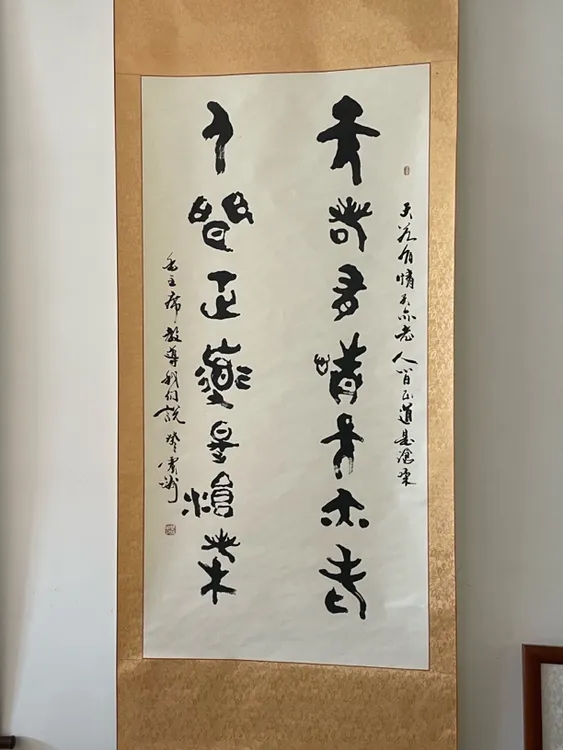 天若有情天亦老 人间正道是滄桑
天若有情天亦老
人間正道是滄桑
毛主席教導我们說